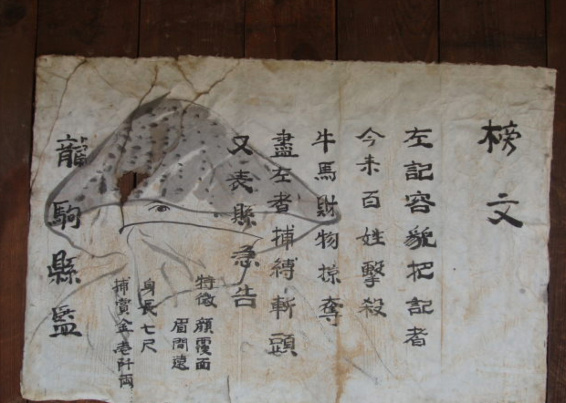 榜文
左記容貌把記者
今未百姓擊殺
牛馬財物掠奪
盡左者捕縛斬頭
又表縣急告
特徵 顔覆面
眉間遠
身長七尺
捕賞金阡兩
龍駒縣監